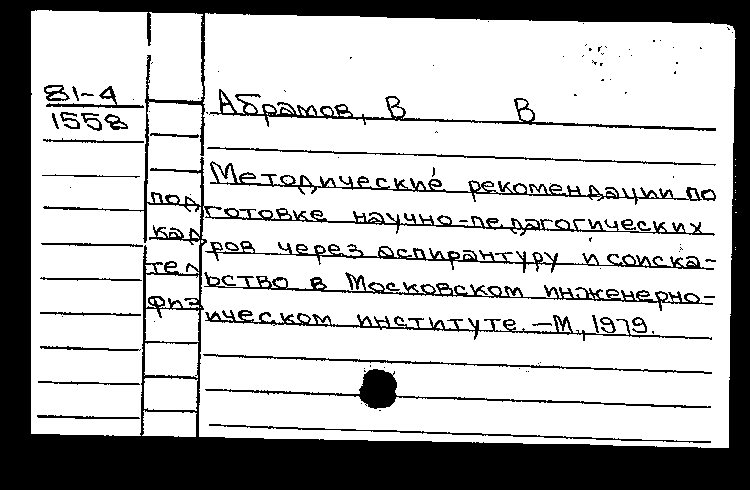 81-4
1558
Абрамов, В В
Методические рекомендации по
подготовке научно-педагогических
кадров через аспирантуру и соиска-
тельство в Московском инженерно-
физическом институте. - М., 1979.